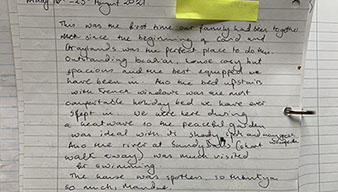 - 23rd August 2021
This was the first time our family had been together
since the beginning of Covid and
Graylands was the perfect place to do this.
Outstanding beaches, house cosy but
spacious and the best equipped we
have been in. And the bed upstairs
with French windows was the most
comfortable holiday bed we have ever
slept in - we were here during
a heatwave so the peaceful garden
was ideal with its shady spots and
And the river at (short
walk away) was much visited
for swimming.
The house was spotless, so thankyou
so much,